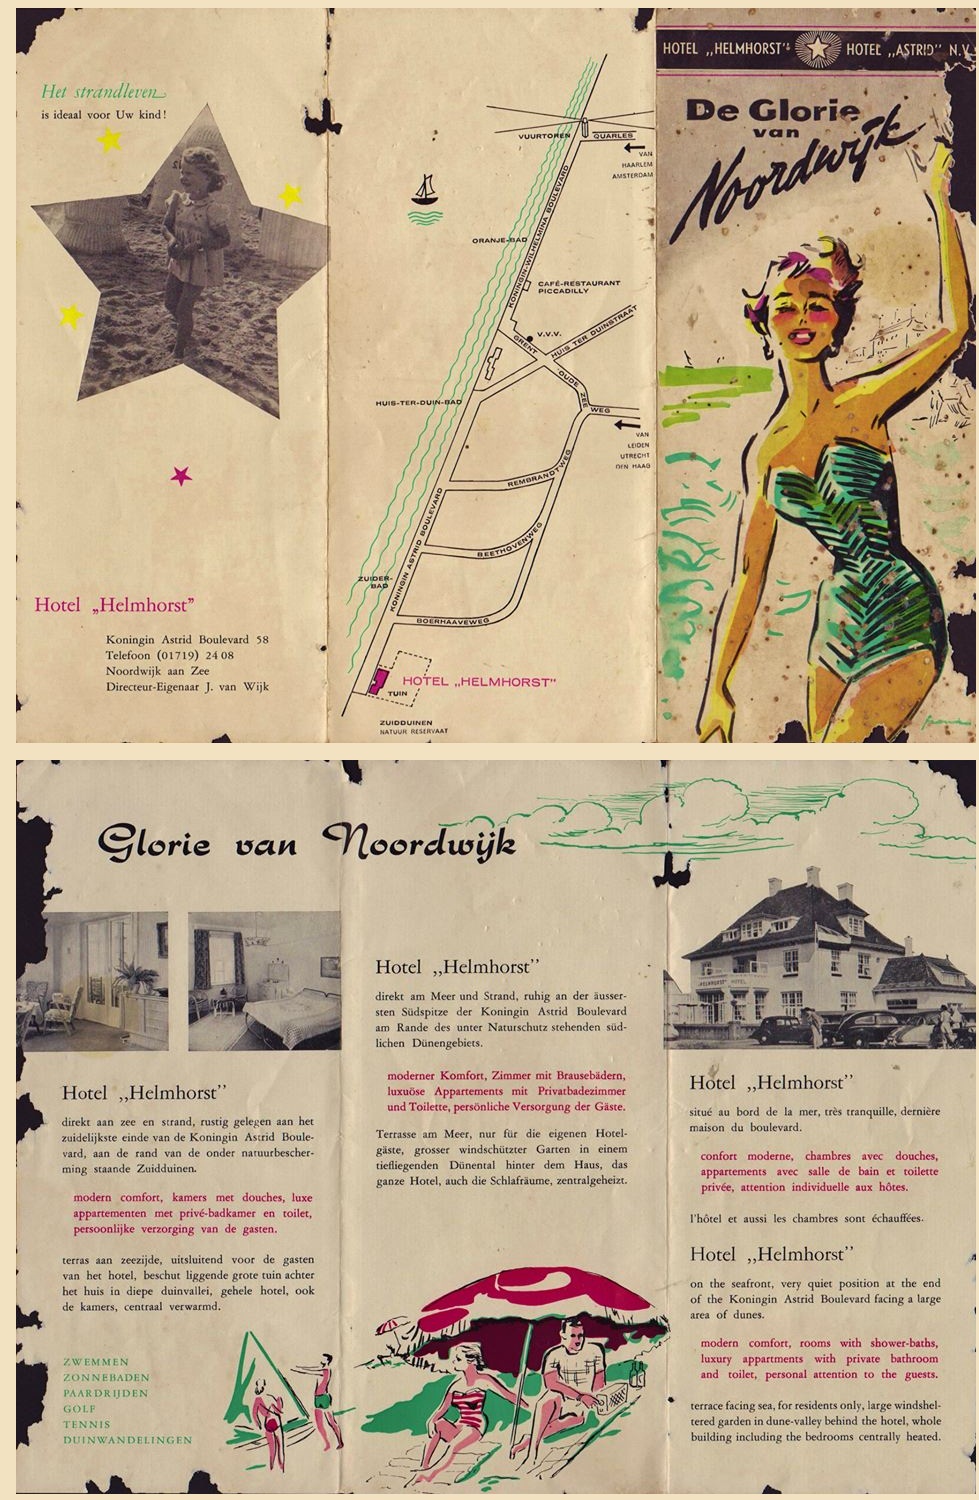 Het strandleven
is ideaal voor Uw kind!
Hotel „Helmhorst”
Koningin Astrid Boulevard 58
Telefoon (01719) 24 08
Noordwijk aan Zee
Directeur-Eigenaar J. van Wijk
VUURTOREN
QUARLES
VAN
HAARLEM
AMSTERDAM
KONINGIN-WILHELMINA BOULEVARD
ORANJE-BAD
CAFÉ-RESTAURANT
PICCADILLY
V.V.V.
GRENT
HUIS TER DUINSTRAAT
OUDE
ZEE
WEG
HUIS-TER-DUIN-BAD
VAN
LEIDEN
UTRECHT
DEN HAAG
REMBRANDTWEG
KONINGIN ASTRID BOULEVARD
BEETHOVENWEG
ZUIDER-
BAD
BOERHAAVEWEG
HOTEL „HELMHORST”
TUIN
ZUIDDUINEN
NATUUR RESERVAAT
HOTEL „HELMHORST” HOTEL „ASTRID” N.V.
De Glorie
van
Noordwijk
Glorie van Noordwijk
Hotel „Helmhorst”
direkt aan zee en strand, rustig gelegen aan het
zuidelijkste einde van de Koningin Astrid Boule-
vard, aan de rand van de onder natuurbescher-
ming staande Zuidduinen.
modern comfort, kamers met douches, luxe
appartementen met privé-badkamer en toilet,
persoonlijke verzorging van de gasten.
terras aan zeezijde, uitsluitend voor de gasten
van het hotel, beschut liggende grote tuin achter
het huis in diepe duinvallei, gehele hotel, ook
de kamers, centraal verwarmd.
ZWEMMEN
ZONNEBADEN
PAARDRIJDEN
GOLF
TENNIS
DUINWANDELINGEN
Hotel „Helmhorst”
direkt am Meer und Strand, ruhig an der äusser-
sten Südspitze der Koningin Astrid Boulevard
am Rande des unter Naturschutz stehenden süd-
lichen Dünengebiets.
moderner Komfort, Zimmer mit Brausebädern,
luxuöse Appartements mit Privatbadezimmer
und Toilette, persönliche Versorgung der Gäste.
Terrasse am Meer, nur für die eigenen Hotel-
gäste, grosser windschützter Garten in einem
tiefliegenden Dünental hinter dem Haus, das
ganze Hotel, auch die Schlafräume, zentralgeheizt.
„HELMHORST” HOTEL
Hotel „Helmhorst”
situé au bord de la mer, très tranquille, dernière
maison du boulevard.
confort moderne, chambres avec douches,
appartements avec salle de bain et toilette
privée, attention individuelle aux hôtes.
l'hôtel et aussi les chambres sont échauffées.
Hotel „Helmhorst”
on the seafront, very quiet position at the end
of the Koningin Astrid Boulevard facing a large
area of dunes.
modern comfort, rooms with shower-baths,
luxury appartments with private bathroom
and toilet, personal attention to the guests.
terrace facing sea, for residents only, large windshel-
tered garden in dune-valley behind the hotel, whole
building including the bedrooms centrally heated.